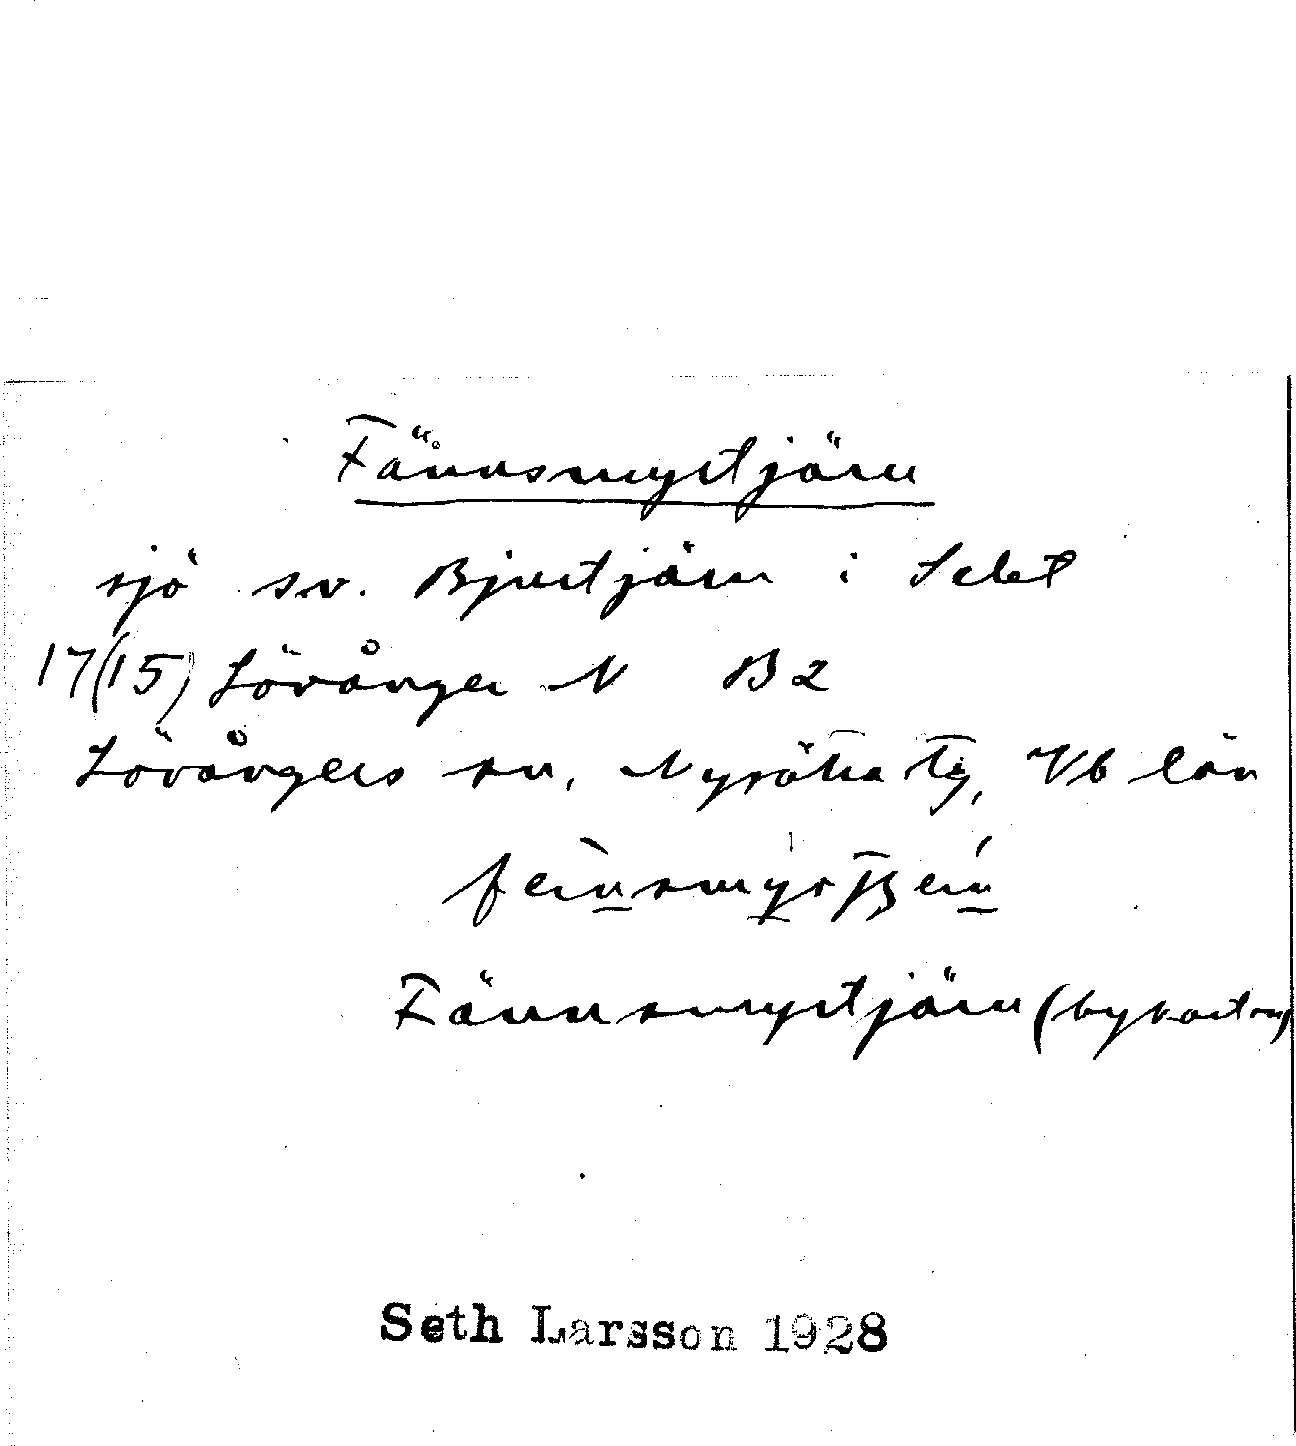 Fännsmyrtjärn
sjö sv. Bjurtjärn i Selet
17(15) Lövånger N B2
Lövångers sn, Nysätra tg, Vb län
Fännsmyrtjärn (bykartan)
Seth Larsson 1928